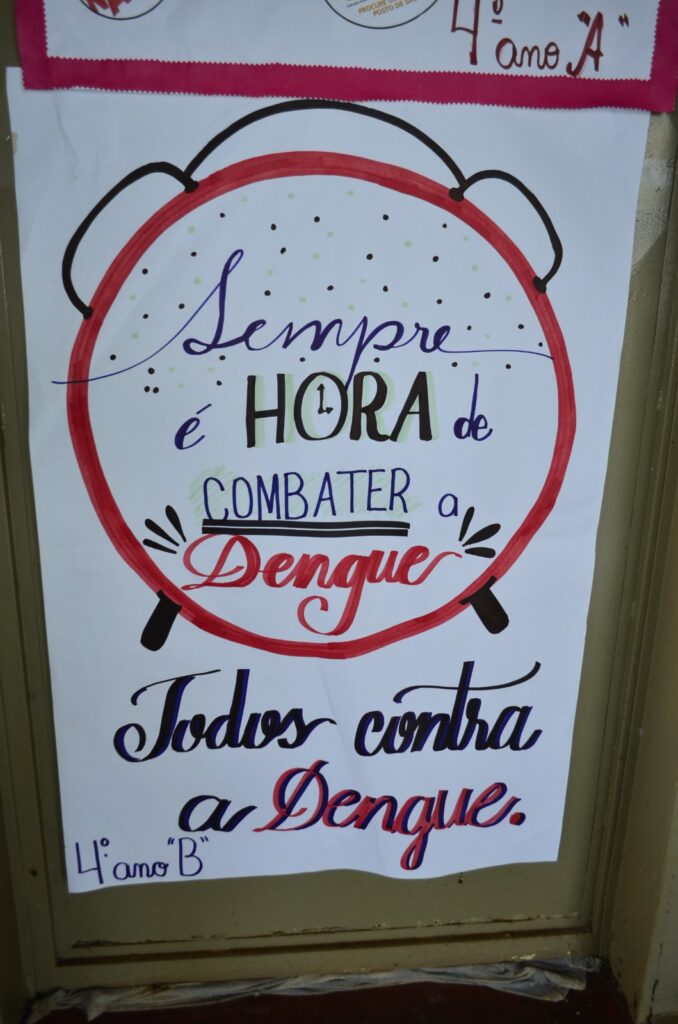 PROCURE
POSTO DE SAÚ
4º ano "A"
Sempre
é HORA de
COMBATER a
Dengue
Todos contra
a Dengue.
4º ano "B"